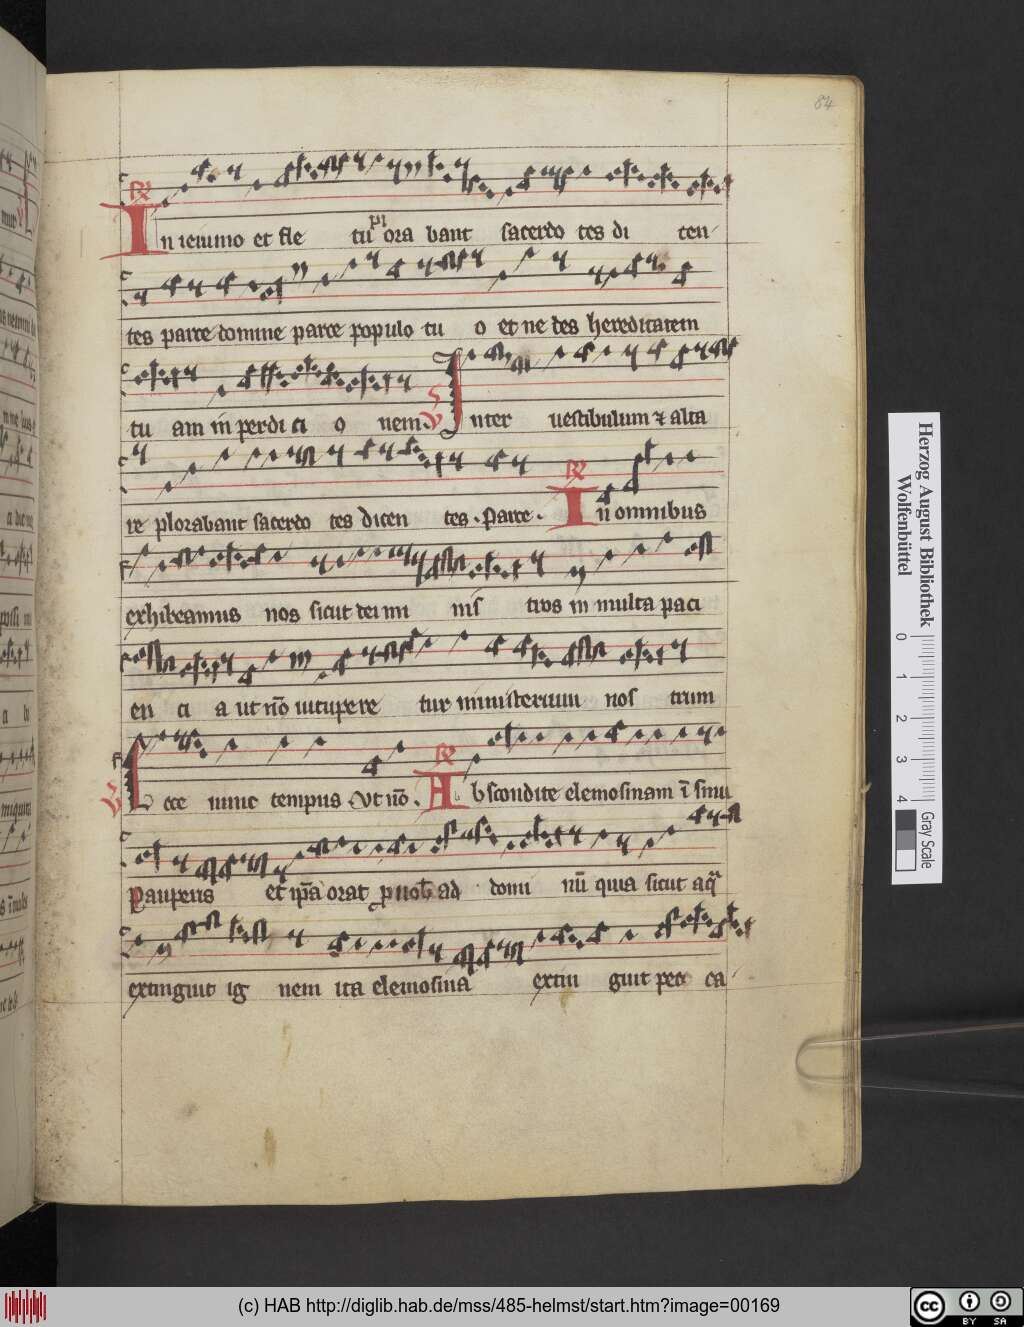 84
R
In ieiunio et fle tu pl ora bant sacerdo tes di cen
tes parce domine parce populo tu o et ne des hereditatem
tu am in perdi ci o nem. V Inter uestibulum ⁊ alta
re plorabant sacerdo tes dicen tes. Parce. R In omnibus
exhibeamus nos sicut dei mi nis tros in multa paci
en ci a ut nō uitupere tur ministerium nos trum
V Ecce nunc tempus Vt nō. R Abscondite elemosinam ī sinu
Pauperis et ip̄a orat pro nob̄ ad domi nū quia sicut aq̄
extinguit ig nem ita elemosina extin guit pec ca
Herzog August Bibliothek
Wolfenbüttel
0 1 2 3 4
Gray Scale
(c) HAB http://diglib.hab.de/mss/485-helmst/start.htm?image=00169
cc BY SA